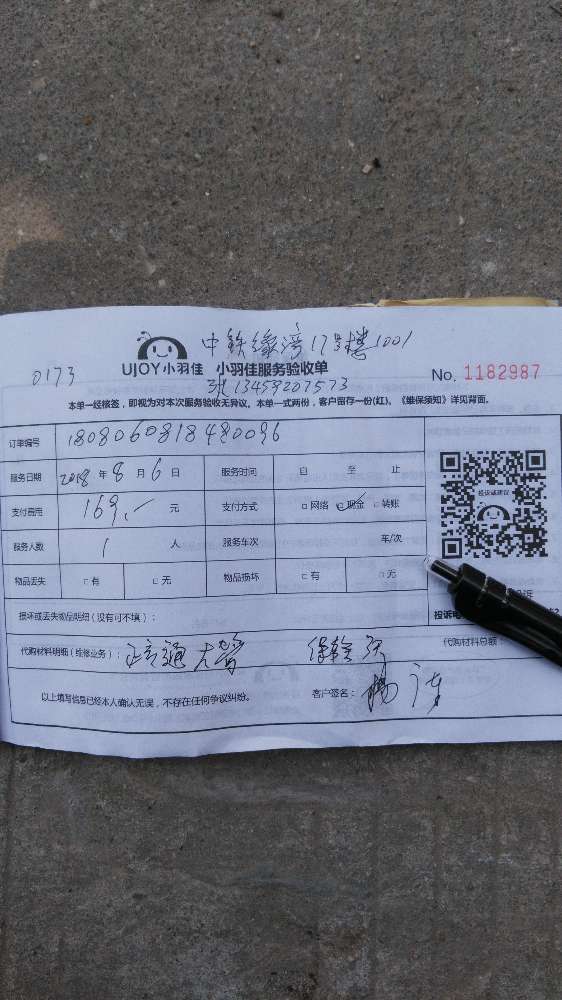 中铁缘湾17号楼1001
UJOY小羽佳 小羽佳服务验收单
0173
13459207573
No. 1182987
本单一经核签，即视为对本次服务验收无异议。本单一式两份，客户留存一份(红)。《维保须知》详见背面。
订单编号 1808060818480096
服务日期 2018 年 8 月 6 日 服务时间 自 至 止
支付费用 169.- 元 支付方式 □网络 □现金 □转账
服务人数 1 人 服务车次 车/次
物品丢失 □有 □无 物品损坏 □有 □无
投诉或建议
损坏或丢失物品明细（没有可不填）：
投诉电
代购材料明细（维修业务）： 疏通大管
代购材料总额
以上填写信息已经本人确认无误，不存在任何争议纠纷。
客户签名：